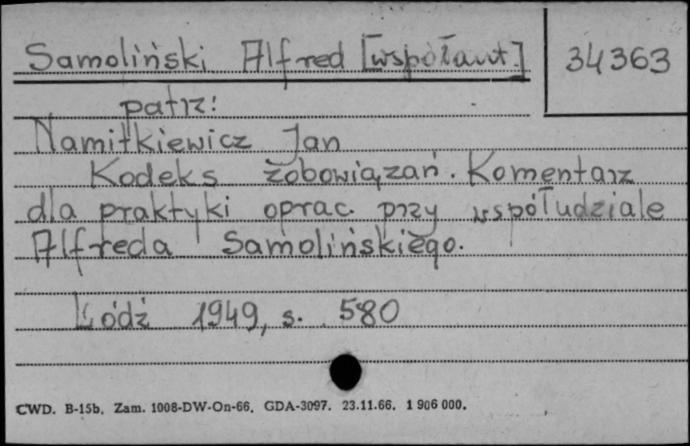 Samoliński Alfred [współaut.]
34363
patrz:
Namitkiewicz Jan
Kodeks zobowiązań. Komentarz
dla praktyki oprac. przy współudziale
Alfreda Samolińskiego.
Łódź 1949, s. 580
CWD. B-15b. Zam. 1008-DW-On-66. GDA-3097. 23.11.66. 1 906 000.